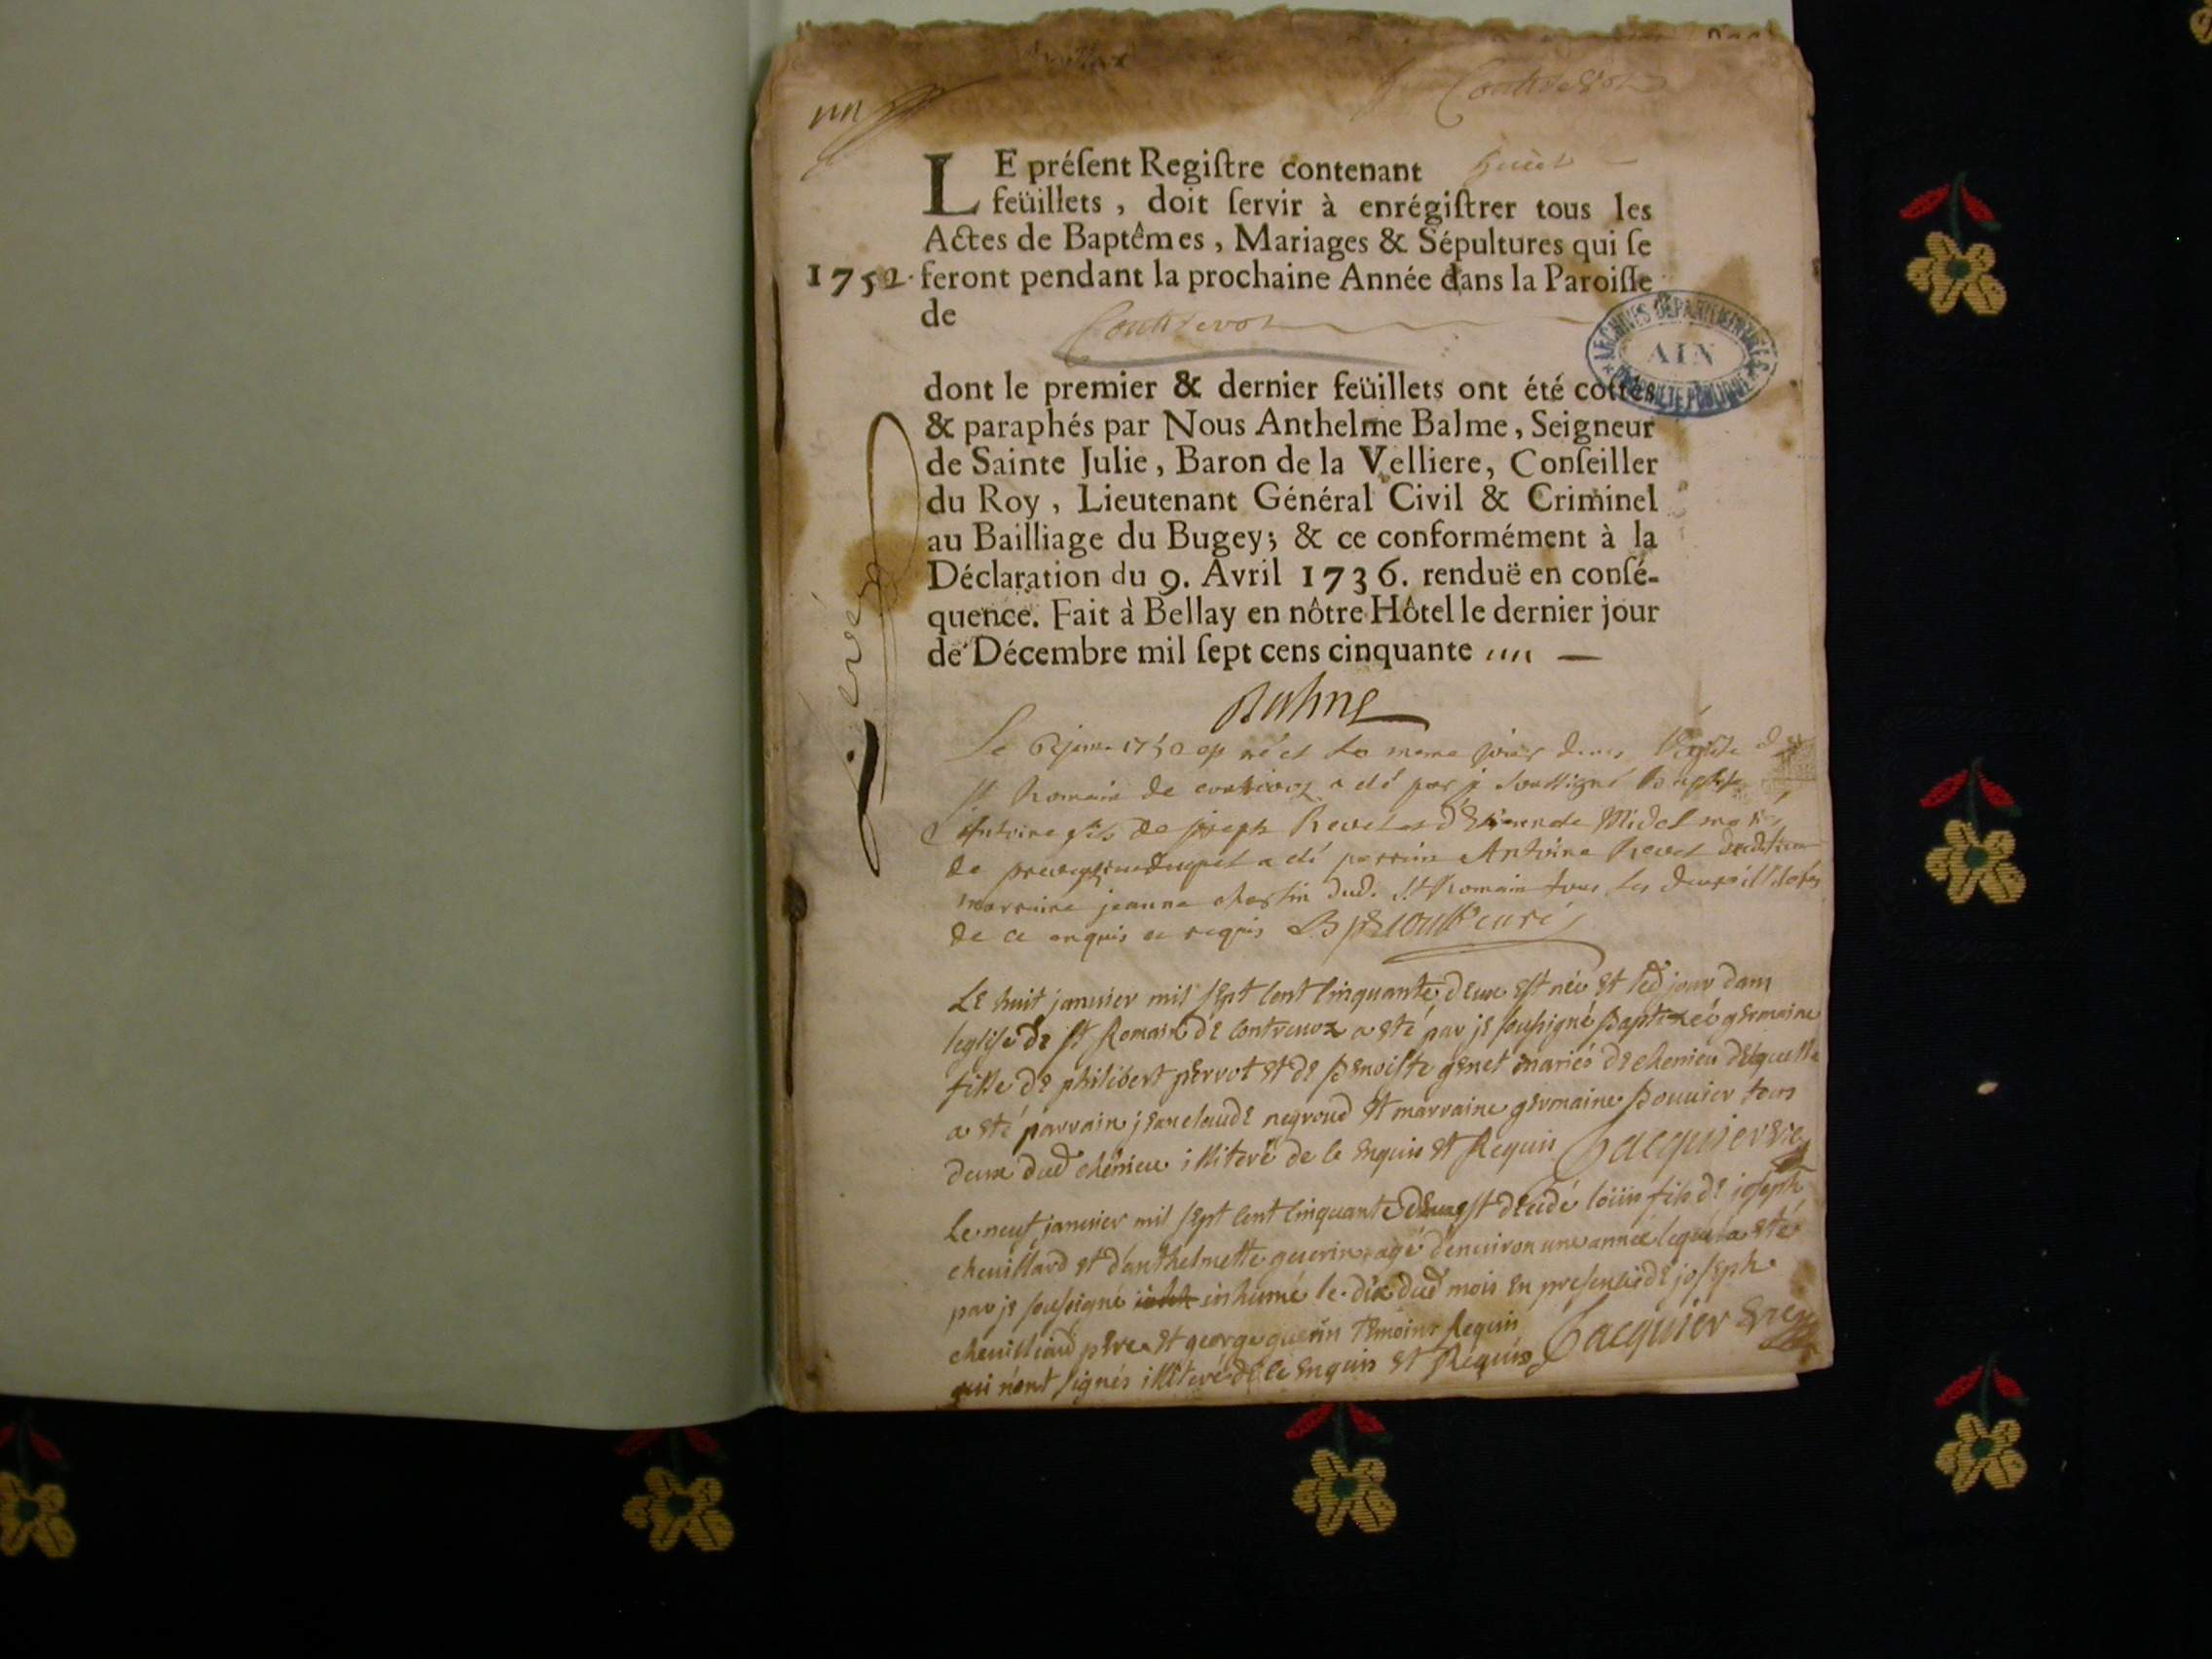 un
LE préſent Regiſtre contenant huict
feüillets, doit ſervir à enrégiſtrer tous les
Actes de Baptêmes, Mariages & Sépultures qui ſe
1752. feront pendant la prochaine Année dans la Paroiſſe
de Contrevoz
ARCHIVES DÉPARTEMENTALES
AIN
dont le premier & dernier feüillets ont été cottés
& paraphés par Nous Anthelme Balme, Seigneur
de Sainte Julie, Baron de la Velliere, Conſeiller
du Roy, Lieutenant Général Civil & Criminel
au Bailliage du Bugey; & ce conformément à la
Déclaration du 9. Avril 1736. renduë en conſé-
quence. Fait à Bellay en nôtre Hôtel le dernier jour
de Décembre mil ſept cens cinquante un
Balme
né et le meme jour dans l'église
St Romain de a eté par je Soussigné
Antoine fils de joseph Revel et d'Etiennete Midol mariés
de a eté parrain Antoine Revel
marraine jeanne dud. St Romain tous les deux
de ce enquis et requis curé
Le huit janvier mil sept cent cinquante deux est née et led jour dans
leglise de St Romain de contrevoz a eté par je sousigné Baptizeé germaine
fille de philibert perrot et de Benoiste genet mariés de chemieu delquelle
a eté parrain jean claude negroud et marraine germaine Bouvier tous
deux dud chemieu illiteré de ce enquis et Requis Jacquier vic
Le neuf janvier mil sept cent cinquante deux est decidé loüis fils de joseph
cheuillard et d'anthelmette guerin agé d'enuiron une année lequel a eté
par je sousigné inhumé le dix dud mois en presence de joseph
cheuilliard pere et george guerin temoins Requis
qui n'ont signés illiteré de ce enquis et Requis Jacquier vic